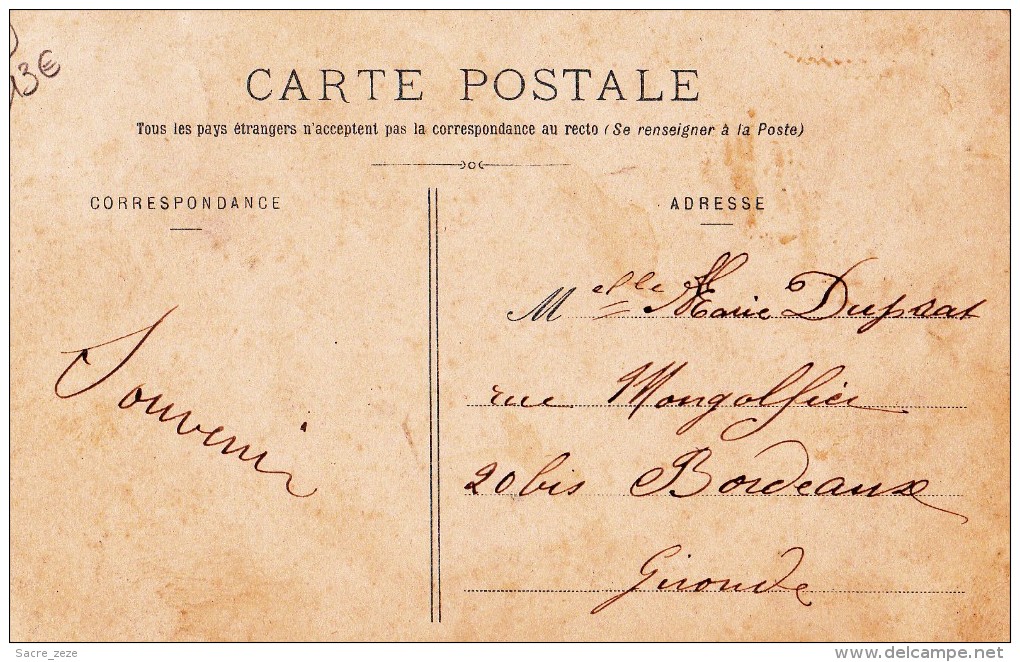 13€
CARTE POSTALE
Tous les pays étrangers n'acceptent pas la correspondance au recto (Se renseigner à la Poste)
CORRESPONDANCE
Souvenir
ADRESSE
Melle Marie Duprat
rue Mongolfier
20 bis Bordeaux
Gironde
Sacre_zeze
delcampe.net